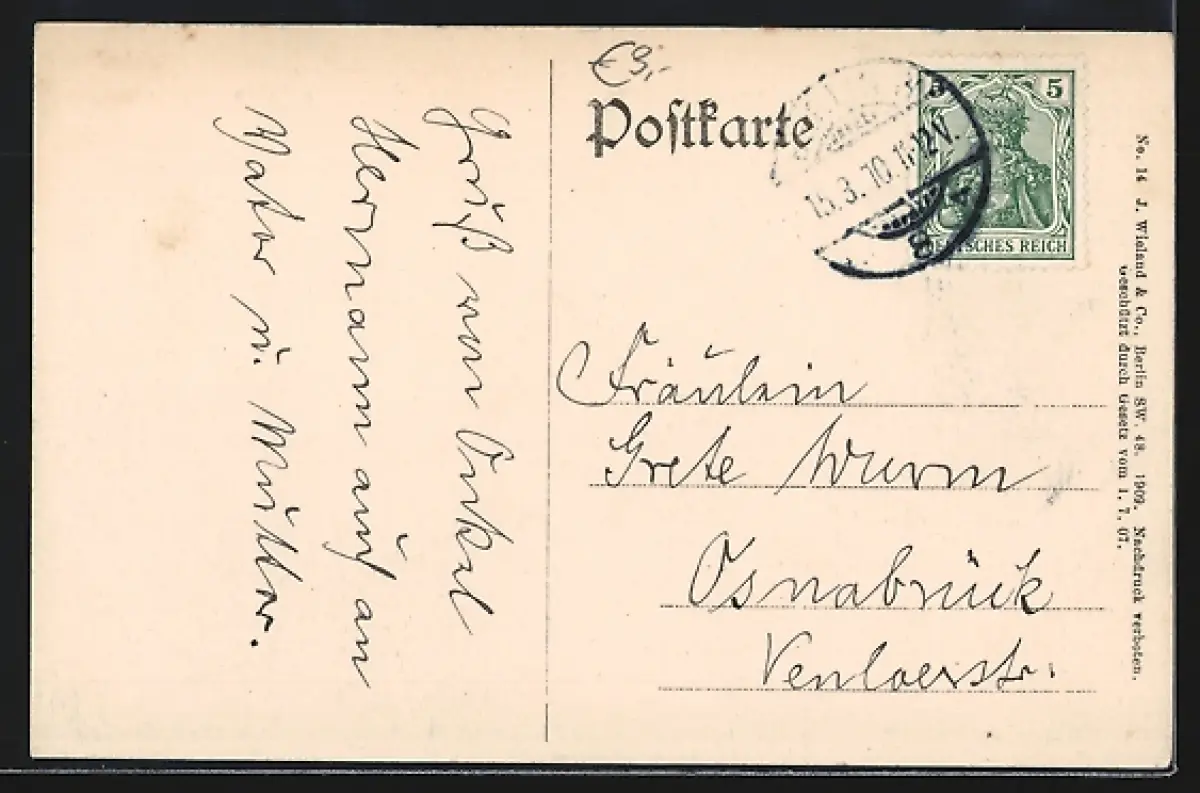 Gruß von Onkel
Hermann auch an
Vater u. Mutter.
€9,-
Postkarte
5 5
DEUTSCHES REICH
15.3.10.11-12V.
Fräulein
Grete Wurm
Osnabrück
Venloerstr.
No. 14 J. Wieland & Co., Berlin SW. 48. 1909. Nachdruck verboten.
Geschützt durch Gesetz vom 1. 7. 07.